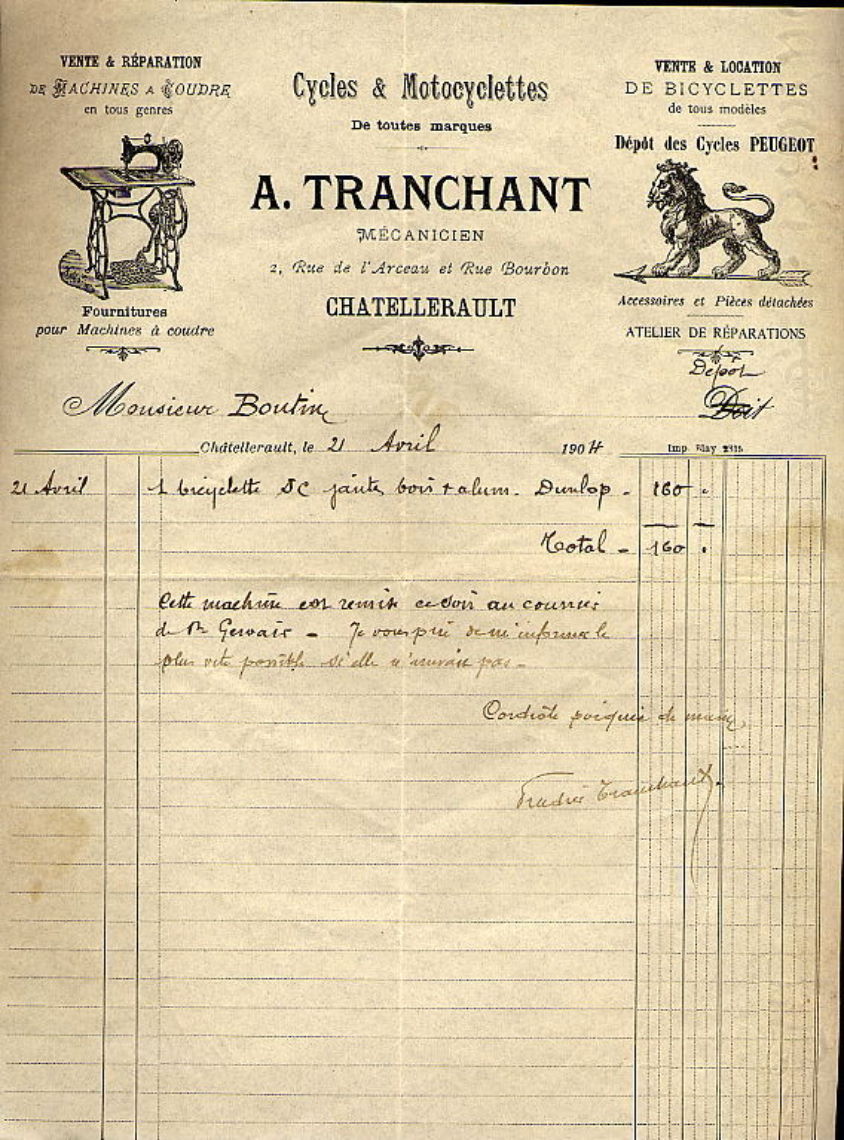 VENTE & RÉPARATION
DE MACHINES A COUDRE
en tous genres
Fournitures
pour Machines à coudre
Cycles & Motocyclettes
De toutes marques
A. TRANCHANT
MÉCANICIEN
2, Rue de l'Arceau et Rue Bourbon
CHATELLERAULT
VENTE & LOCATION
DE BICYCLETTES
de tous modèles
Dépôt des Cycles PEUGEOT
Accessoires et Pièces détachées
ATELIER DE RÉPARATIONS
Dépot
Monsieur Boutin Doit
Châtellerault, le 21 Avril 1904 Imp.
21 Avril 1 bicyclette SC jantes bois + alum. Dunlop - 160 "
Total - 160 "
Cette machine est remise ce soir au courrier
de St Gervais - Je vous prie de m'informer le
plus vite possible si elle n'arrivait pas -
Cordiale poignée de main
Tranchant